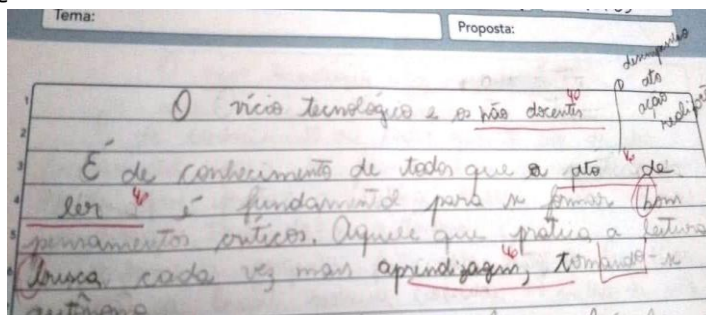 Tema:
Proposta:
desempenho
ato
ação
O vício tecnológico e os não docentes
É de conhecimento de todos que o ato de
ler é fundamental para se formar bom
pensamentos críticos. Aquele que pratica a leitura
busca cada vez mais aprendizagem, tornando-se
autônomo